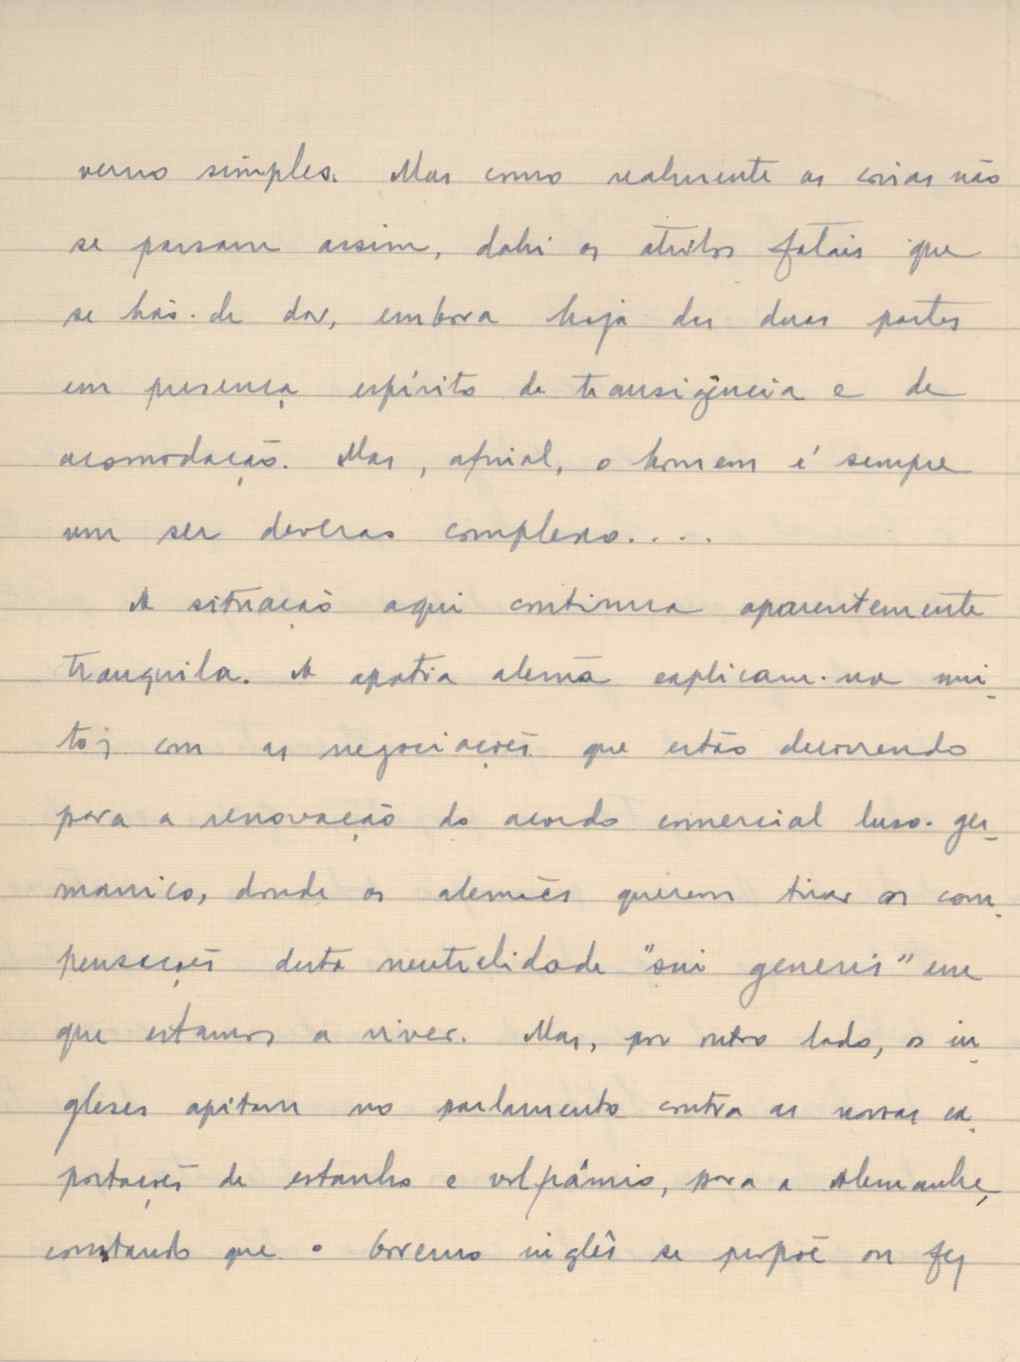 verno simples. Mas como realmente as coisas não
se passam assim, dahi os atritos fatais que
se hão-de dar, embora haja das duas partes
em presença espírito de transigência e de
acomodação. Mas, afinal, o homem é sempre
um ser deveras complexo....
A situação aqui continua aparentemente
tranquila. A apatia alemã explicam-na mui-
tos com as negociações que estão decorrendo
para a renovação do acordo comercial luso-ger-
manico, donde os alemães querem tirar as com-
pensações desta neutralidade "sui generis" em
que estamos a viver. Mas, por outro lado, os in-
gleses apitam no parlamento contra as nossas ex-
portações de estanho e volfrâmio, para a Alemanha,
constando que o Governo inglês se propõe ou fez